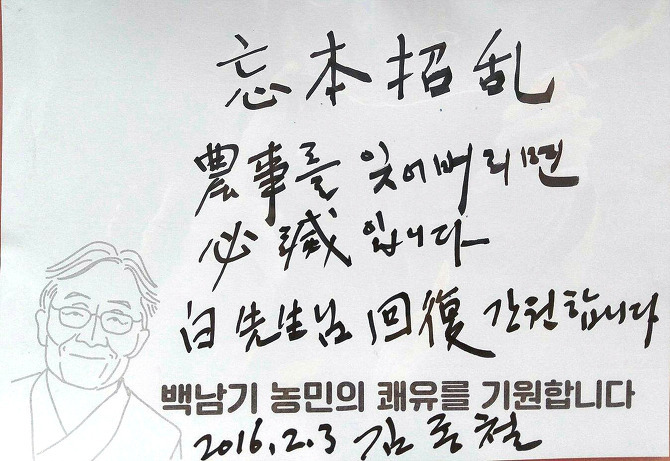 忘本招乱
農事를 잊어버리면
必滅입니다
白先生님 回復 간원합니다
백남기 농민의 쾌유를 기원합니다
2016.2.3 김동철